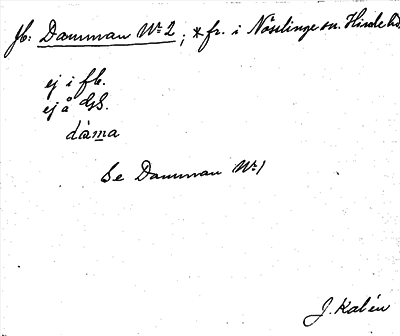 fb: Damman Nr 2; *fr. i Nösslinge sn. Himle hd
ej i fb.
ej å GS.
dàma
Se Damman Nr 1
J. Kalén